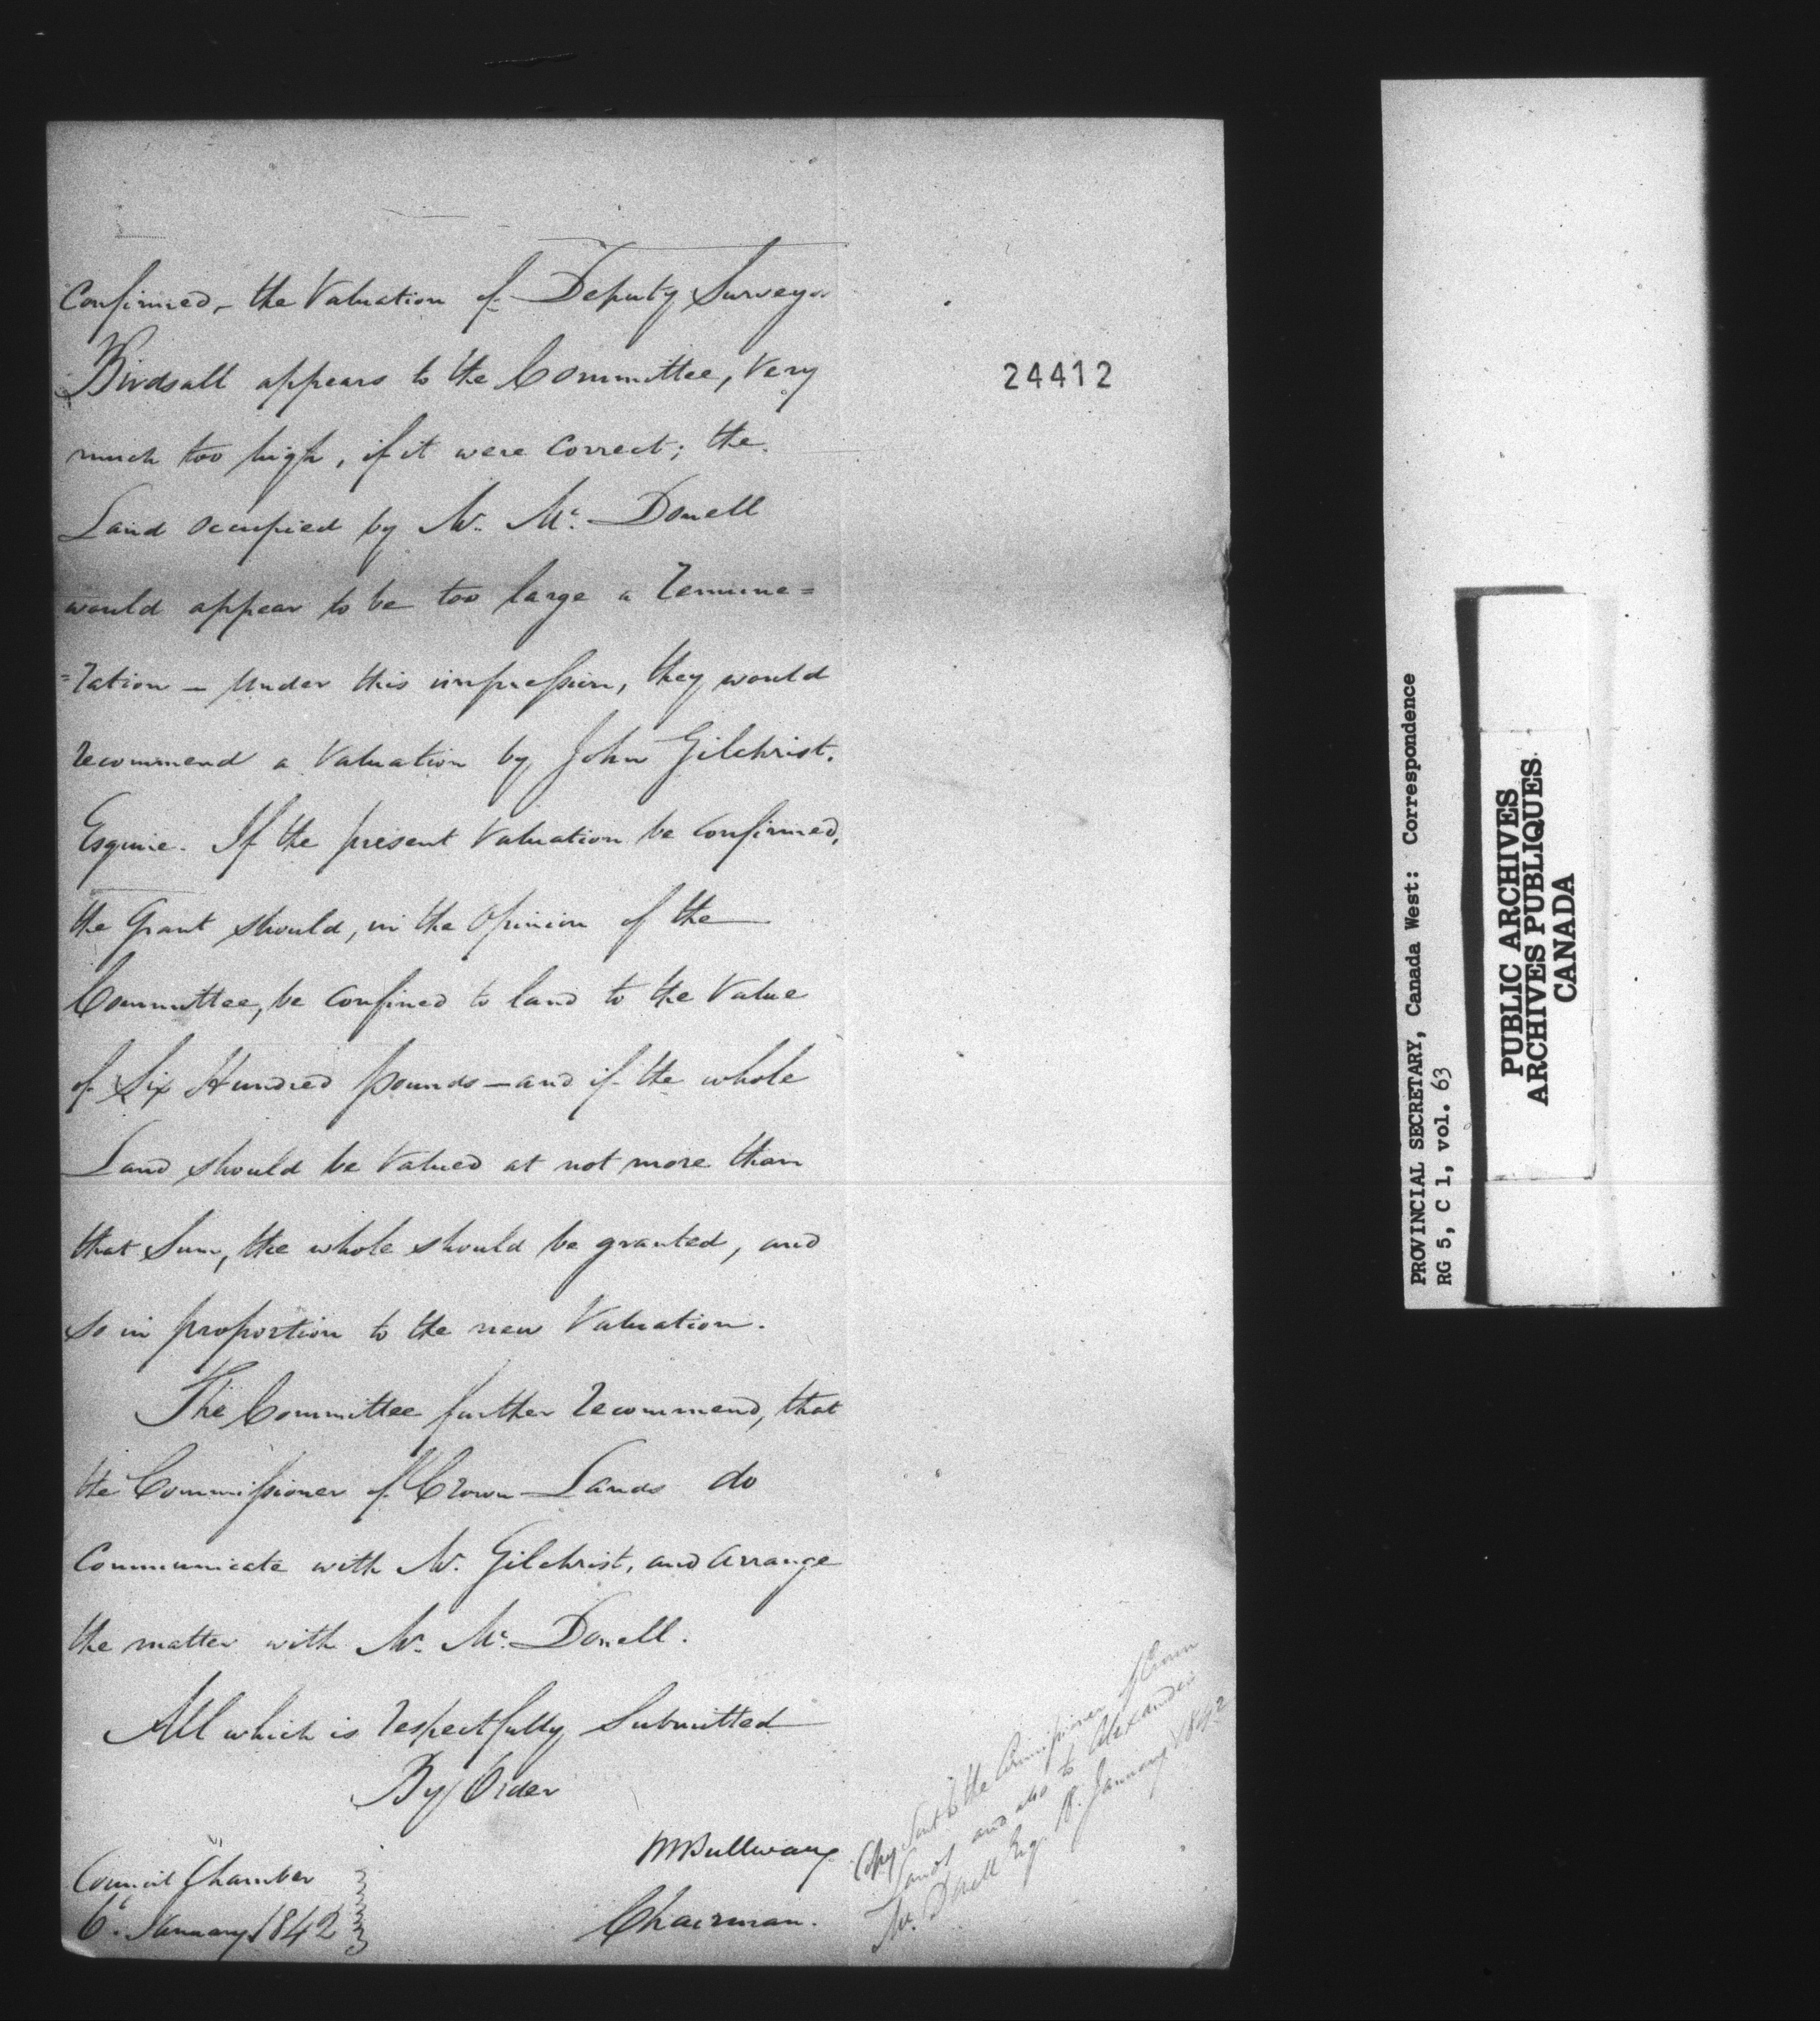 Confirmed, - the Valuation of Deputy Surveyor
Birdsall appears to the Committee, very
much too high, if it were correct; the
Land occupied by Mr. Mc. Donell
would appear to be too large a remune=
=ration - Under this impression, they would
recommend a Valuation by John Gilchrist.
Esquire. If the present Valuation be confirmed,
the Grant should, in the Opinion of the
Committee, be confined to land to the Value
of Six Hundred pounds - and if the whole
Land should be Valued at not more than
that Sum, the whole should be granted, and
so in proportion to the new Valuation.
The Committee further recommend, that
the Commissioner of Crown Lands do
Communicate with Mr. Gilchrist, and arrange
the matter with Mr. Mc. Donell.
All which is respectfully Submitted
By Order
Chairman.
Council Chamber
6t. January 1842
Copy Sent to the Commissioner of Crown
Lands and also to Alexander
Mc. Donell Esq. 18. January 1842
24412
PROVINCIAL SECRETARY, Canada West: Correspondence
RG 5, C 1, vol. 63
PUBLIC ARCHIVES
ARCHIVES PUBLIQUES
CANADA